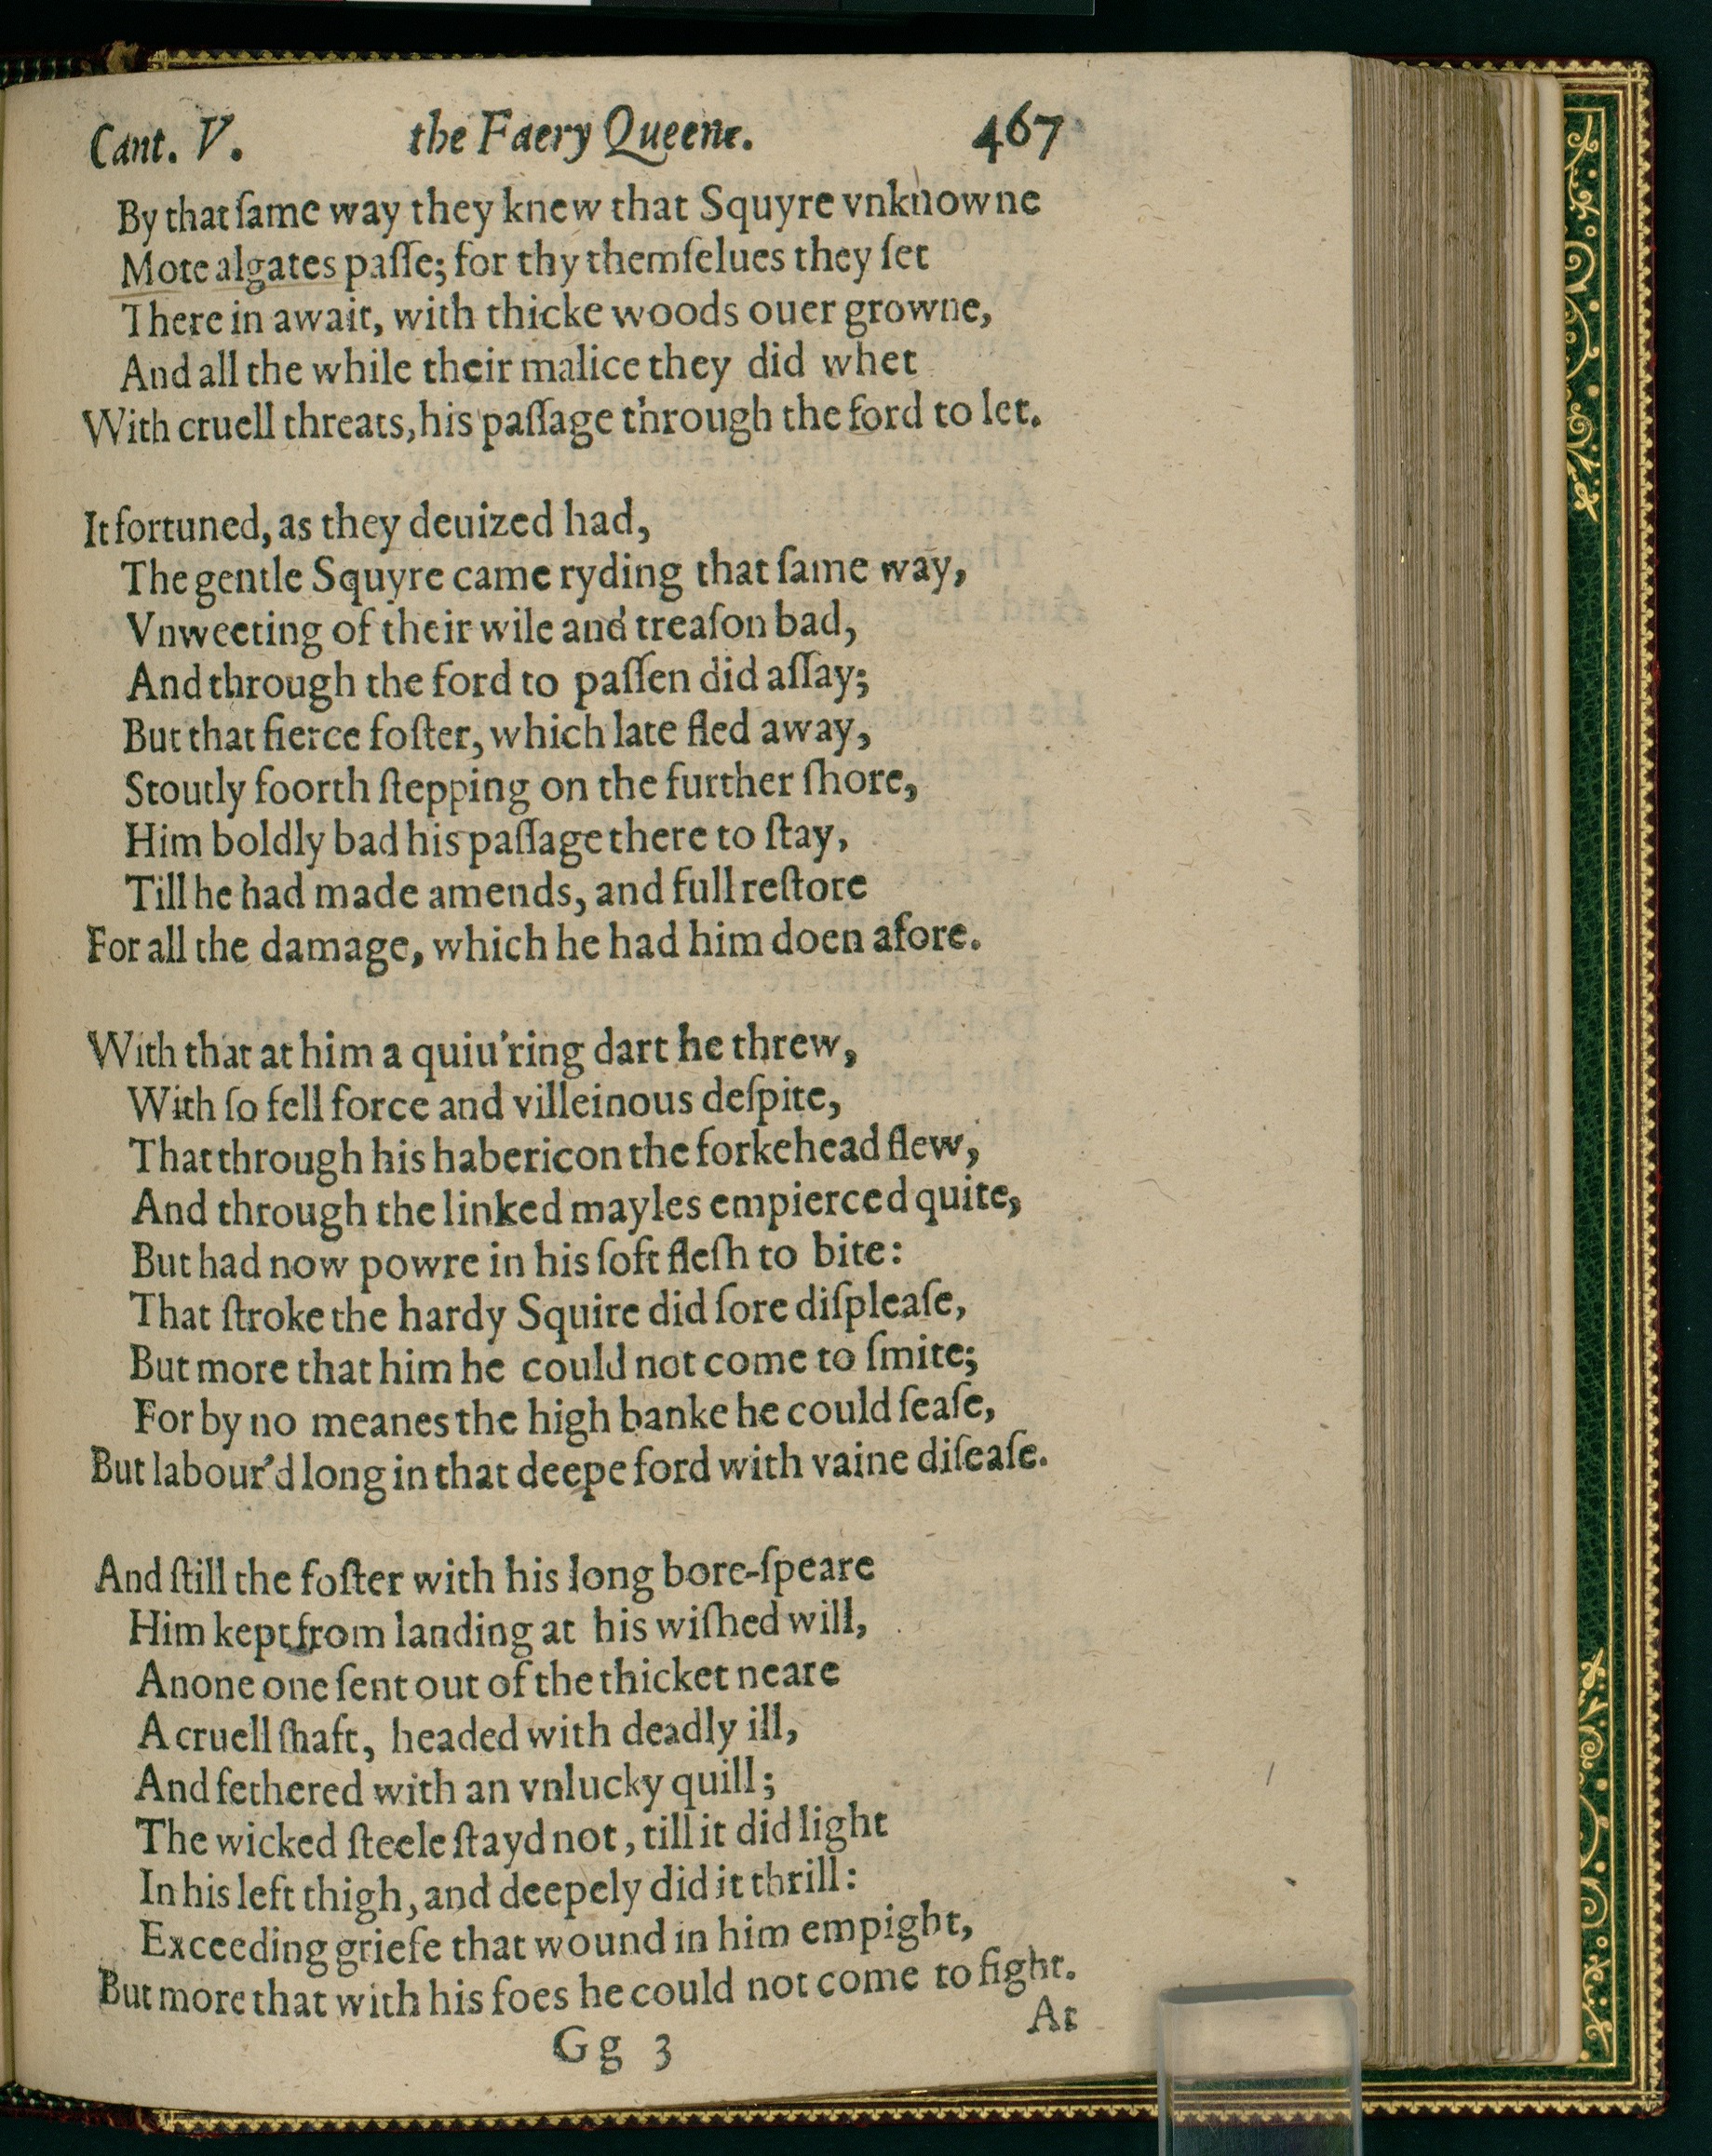 Cant. V. the Faery Queene. 467
By that ſame way they knew that Squyre vnknowne
Mote algates paſſe; for thy themſelues they ſet
There in await, with thicke woods ouer growne,
And all the while their malice they did whet
With cruell threats, his paſſage through the ford to let.
It fortuned, as they deuized had,
The gentle Squyre came ryding that ſame way,
Vnweeting of their wile and treaſon bad,
And through the ford to paſſen did aſſay;
But that fierce foſter, which late fled away,
Stoutly foorth ſtepping on the further ſhore,
Him boldly bad his paſſage there to ſtay,
Till he had made amends, and full reſtore
For all the damage, which he had him doen afore.
With that at him a quiu'ring dart he threw,
With ſo fell force and villeinous deſpite,
That through his habericon the forkehead flew,
And through the linked mayles empierced quite,
But had now powre in his ſoft fleſh to bite:
That ſtroke the hardy Squire did ſore diſpleaſe,
But more that him he could not come to ſmite;
For by no meanes the high banke he could ſeaſe,
But labour'd long in that deepe ford with vaine diſeaſe.
And ſtill the foſter with his long bore-ſpeare
Him kept from landing at his wiſhed will,
Anone one ſent out of the thicket neare
A cruell ſhaft, headed with deadly ill,
And fethered with an vnlucky quill;
The wicked ſteele ſtayd not, till it did light
In his left thigh, and deepely did it thrill:
Exceeding griefe that wound in him empight,
But more that with his foes he could not come to fight.
At
Gg 3